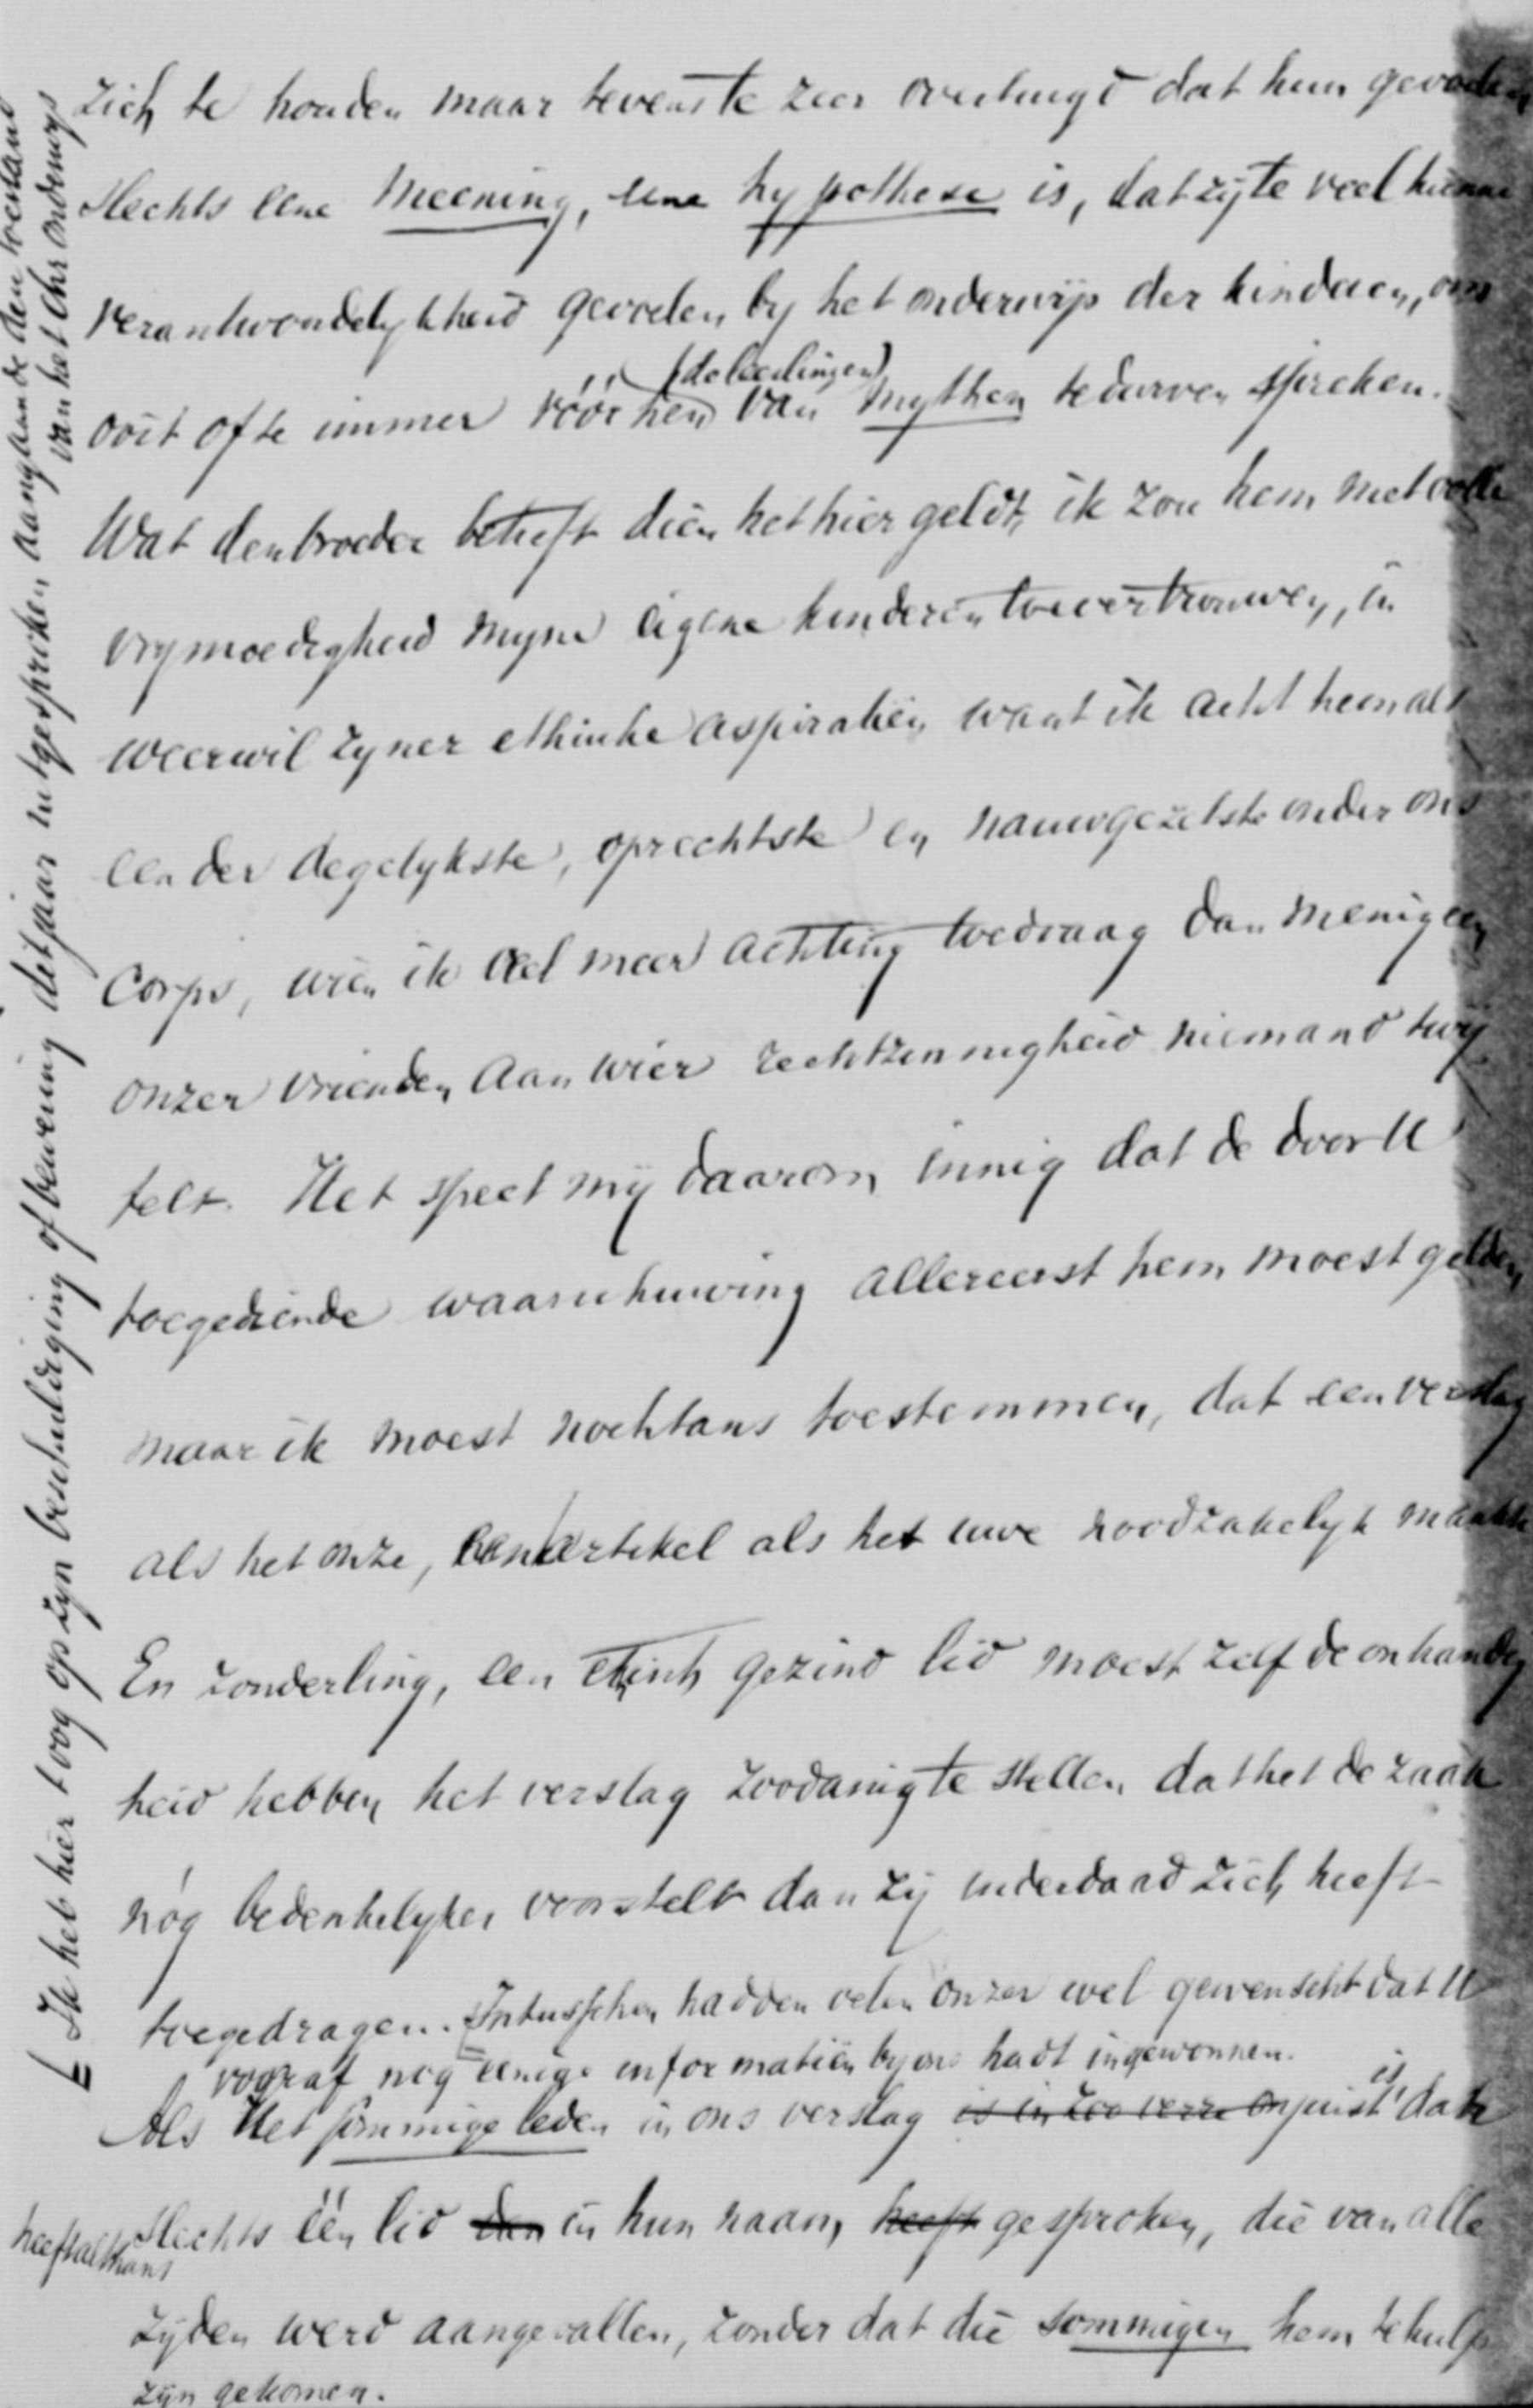 zich te houden maar tevens te zeer overtuigd dat hun gevoelen
slechts eene meening, eene hypothese is, dat zy te veel hunne
verantwoordelykheid gevoelen by het onderwijs der kinderen, om
ooit ofte immer vóór hen (de leerlingen) van mythen te durven spreken.
Wat den broeder betreft dien het hier geldt, ik zou hem met volle
vrymoedigheid myne eigene kinderen toevertrouwen, in
weerwil zyner ethische aspiratiën want ik acht hem als
een der degelykste, oprechtste en nauwgezetste onder ons
corps, wien ik veel meer achting toedraag dan menigeen
onzer vrienden aan wier rechtzinnigheid niemand twij
felt. Het speet mij daarom innig dat de door U
toegediende waarschuwing allereerst hem moest gelden,
maar ik moest nochtans toestemmen, dat een verslag
als het onze, een artikel als het uwe noodzakelyk maakte
En zonderling, een ethisch gezind lid moest zelf de onhandig
heid hebben het verslag zoodanig te stellen dat het de zaak
nóg bedenkelyker voorstelt dan zij inderdaad zich heeft
toegedragen. Intusschen hadden velen onzer wel gewenscht dat U
vooraf nog eenige informatiën by ons hadt ingewonnen.
Als Het sommige leden in ons verslag is in zoo verre onjuist is, dat
slechts één lid dan in hun naam heeft gesproken, die van alle
heeft althans
zyden werd aangevallen, zonder dat die sommigen hem te hulp
zyn gekomen.
Ik heb hier toog op zyn beschuldiging of bewering dit jaar uitgesproken aangaande den toestand
van het Chr onderwys